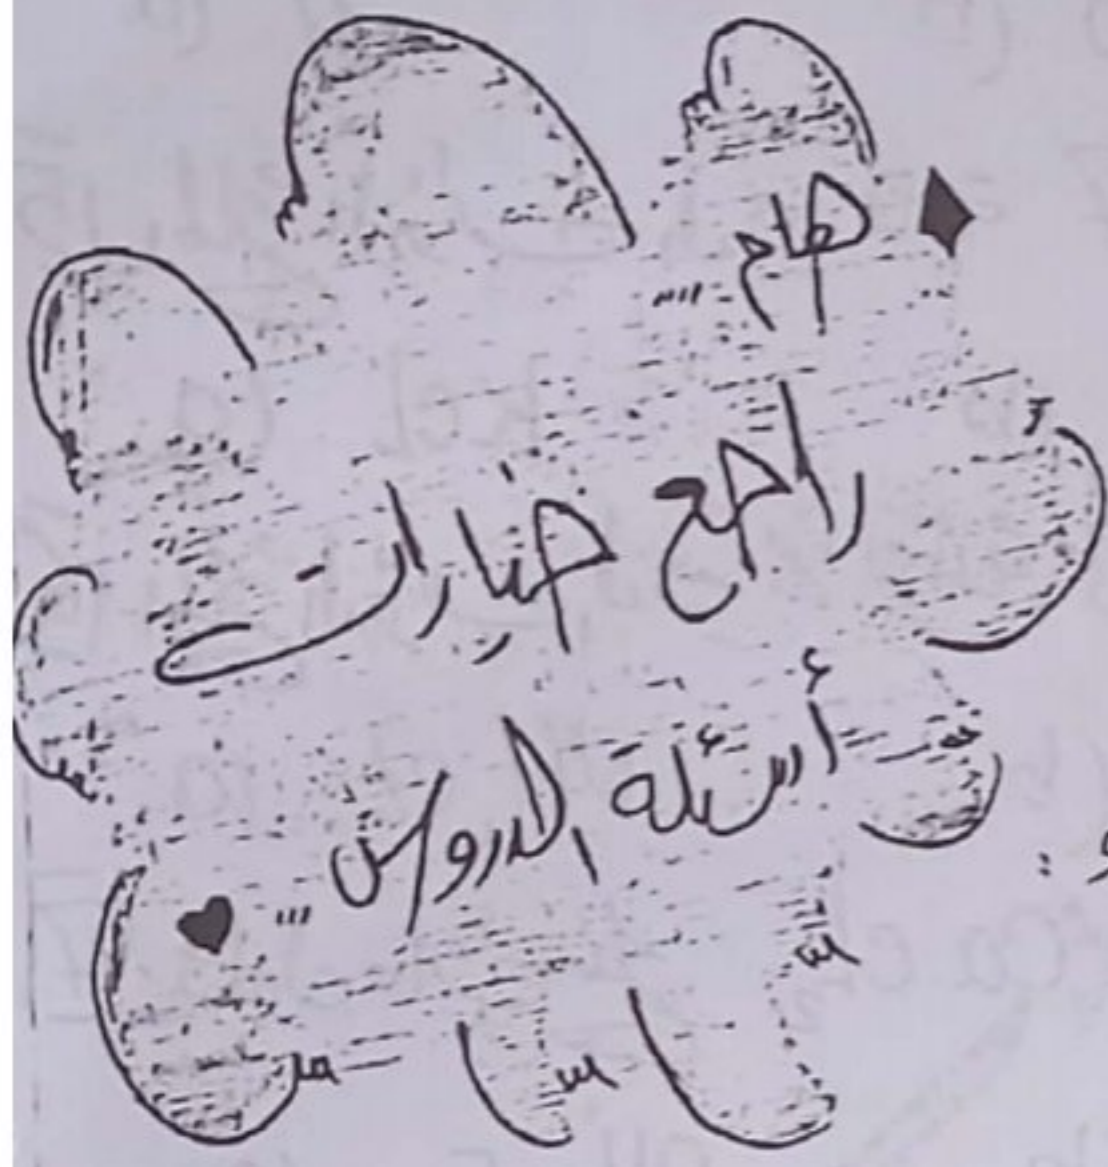 ♦ هام ...
راجع خيارات
أسئلة الدروس ... ♥